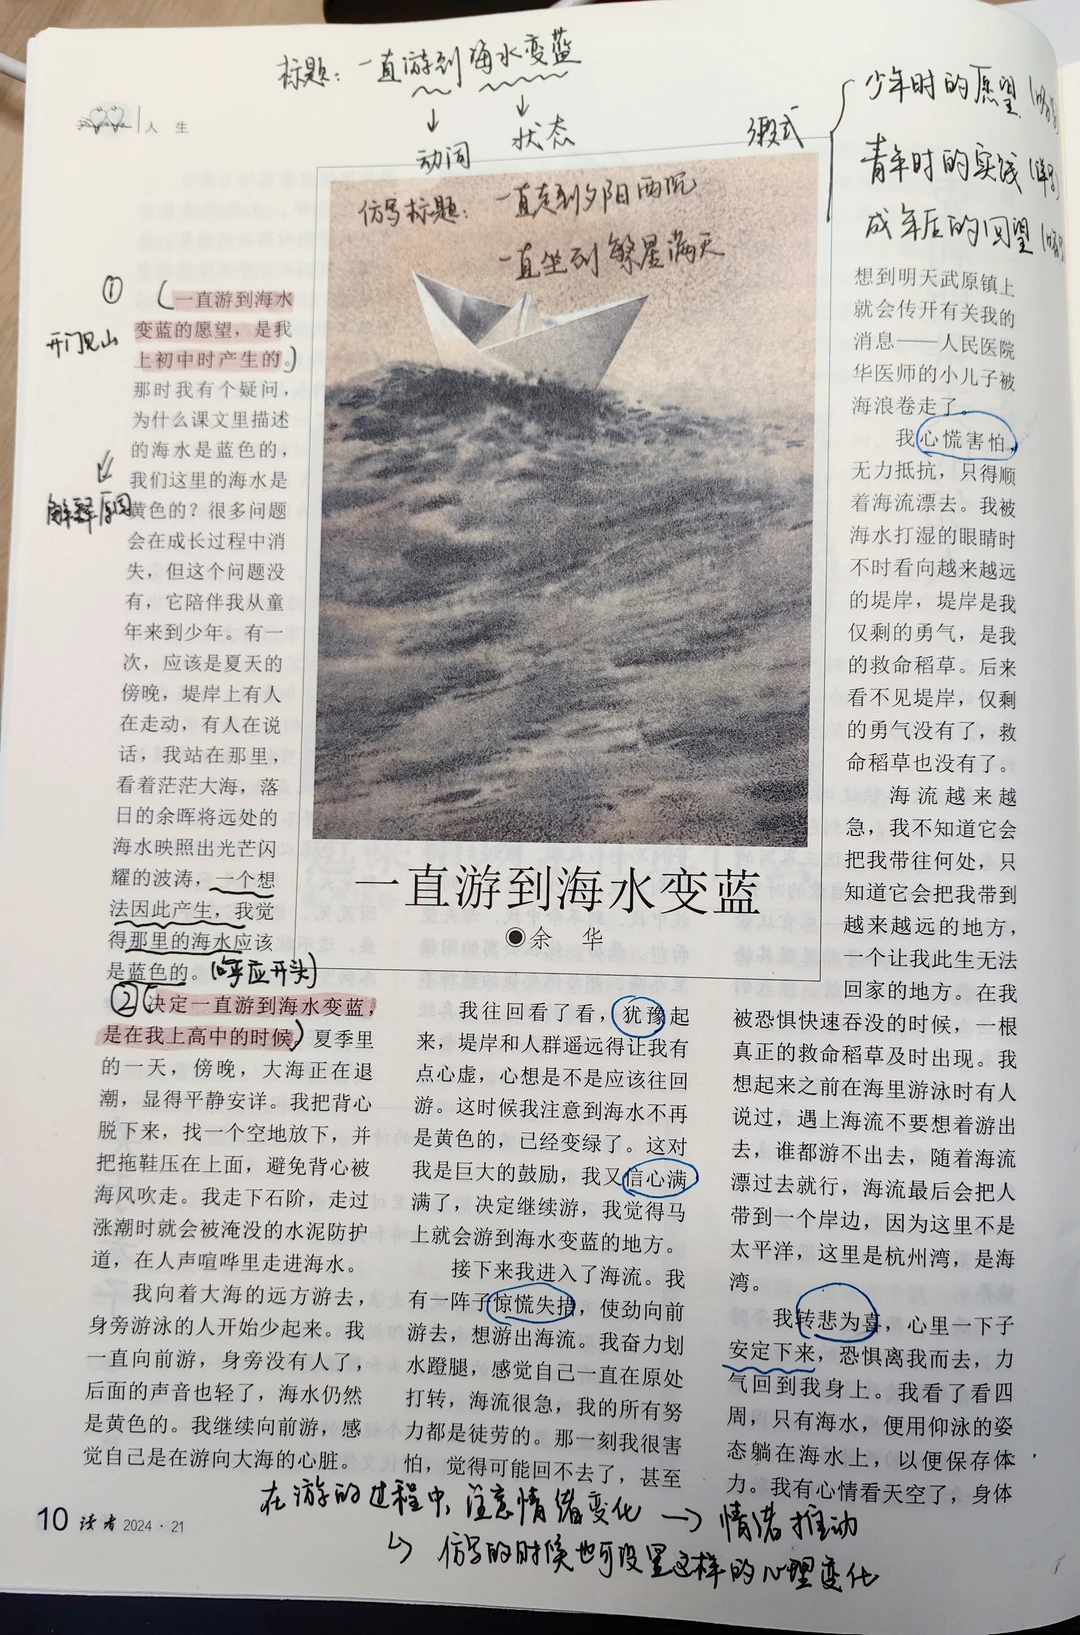 标题：一直游到海水变蓝
动词
状态
仿写标题：一直走到夕阳西沉
一直坐到繁星满天
少年时的愿望
青年时的实践
成年后的回望
人 生
①
开门见山
解释原因
(一直游到海水
变蓝的愿望，是我
上初中时产生的。)
那时我有个疑问，
为什么课文里描述
的海水是蓝色的，
我们这里的海水是
黄色的？很多问题
会在成长过程中消
失，但这个问题没
有，它陪伴我从童
年来到少年。有一
次，应该是夏天的
傍晚，堤岸上有人
在走动，有人在说
话，我站在那里，
看着茫茫大海，落
日的余晖将远处的
海水映照出光芒闪
耀的波涛，一个想
法因此产生，我觉
得那里的海水应该
是蓝色的。(呼应开头)
②(决定一直游到海水变蓝，
是在我上高中的时候)。夏季里
的一天，傍晚，大海正在退
潮，显得平静安详。我把背心
脱下来，找一个空地放下，并
把拖鞋压在上面，避免背心被
海风吹走。我走下石阶，走过
涨潮时就会被淹没的水泥防护
道，在人声喧哗里走进海水。
我向着大海的远方游去，
身旁游泳的人开始少起来。我
一直向前游，身旁没有人了，
后面的声音也轻了，海水仍然
是黄色的。我继续向前游，感
觉自己是在游向大海的心脏。
一直游到海水变蓝
●余 华
我往回看了看，犹豫起
来，堤岸和人群遥远得让我有
点心虚，心想是不是应该往回
游。这时候我注意到海水不再
是黄色的，已经变绿了。这对
我是巨大的鼓励，我又信心满
满了，决定继续游，我觉得马
上就会游到海水变蓝的地方。
接下来我进入了海流。我
有一阵子惊慌失措，使劲向前
游去，想游出海流。我奋力划
水蹬腿，感觉自己一直在原处
打转，海流很急，我的所有努
力都是徒劳的。那一刻我很害
怕，觉得可能回不去了，甚至
想到明天武原镇上
就会传开有关我的
消息——人民医院
华医师的小儿子被
海浪卷走了。
我心慌害怕，
无力抵抗，只得顺
着海流漂去。我被
海水打湿的眼睛时
不时看向越来越远
的堤岸，堤岸是我
仅剩的勇气，是我
的救命稻草。后来
看不见堤岸，仅剩
的勇气没有了，救
命稻草也没有了。
海流越来越
急，我不知道它会
把我带往何处，只
知道它会把我带到
越来越远的地方，
一个让我此生无法
回家的地方。在我
被恐惧快速吞没的时候，一根
真正的救命稻草及时出现。我
想起来之前在海里游泳时有人
说过，遇上海流不要想着游出
去，谁都游不出去，随着海流
漂过去就行，海流最后会把人
带到一个岸边，因为这里不是
太平洋，这里是杭州湾，是海
湾。
我转悲为喜，心里一下子
安定下来，恐惧离我而去，力
气回到我身上。我看了看四
周，只有海水，便用仰泳的姿
态躺在海水上，以便保存体
力。我有心情看天空了，身体
在游的过程中，注意情绪变化 → 情绪推动
↳ 仿写的时候也可设置这样的心理变化
10 读者 2024 · 21